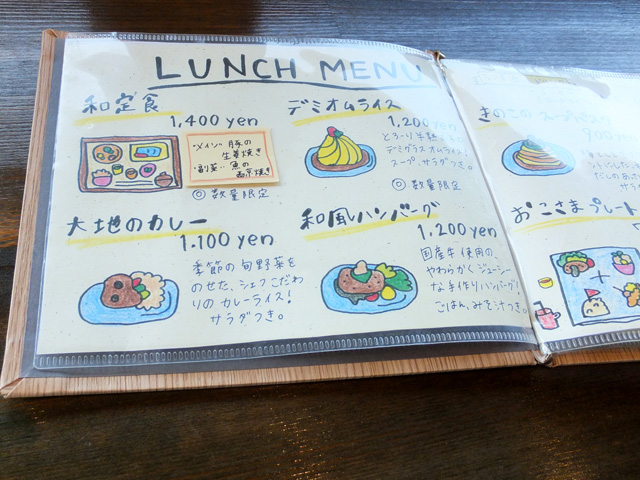 LUNCH MENU
和定食
1,400 yen
・メイン・豚の
生姜焼き
・副菜・・魚の
西京焼き
◎ 数量限定
デミオムライス
1,200 yen
とろ〜り半熟
デミグラスオムライス!
スープ、サラダつき。
◎ 数量限定
大地のカレー
1,100 yen
季節の旬野菜を
のせた、シェフこだわ
りのカレーライス!
サラダつき。
和風ハンバーグ
1,200 yen
国産牛使用の、
やわらかくジューシー
な手作りハンバーグ!
ごはん、みそ汁つき。
きのこの
おこさまプレート